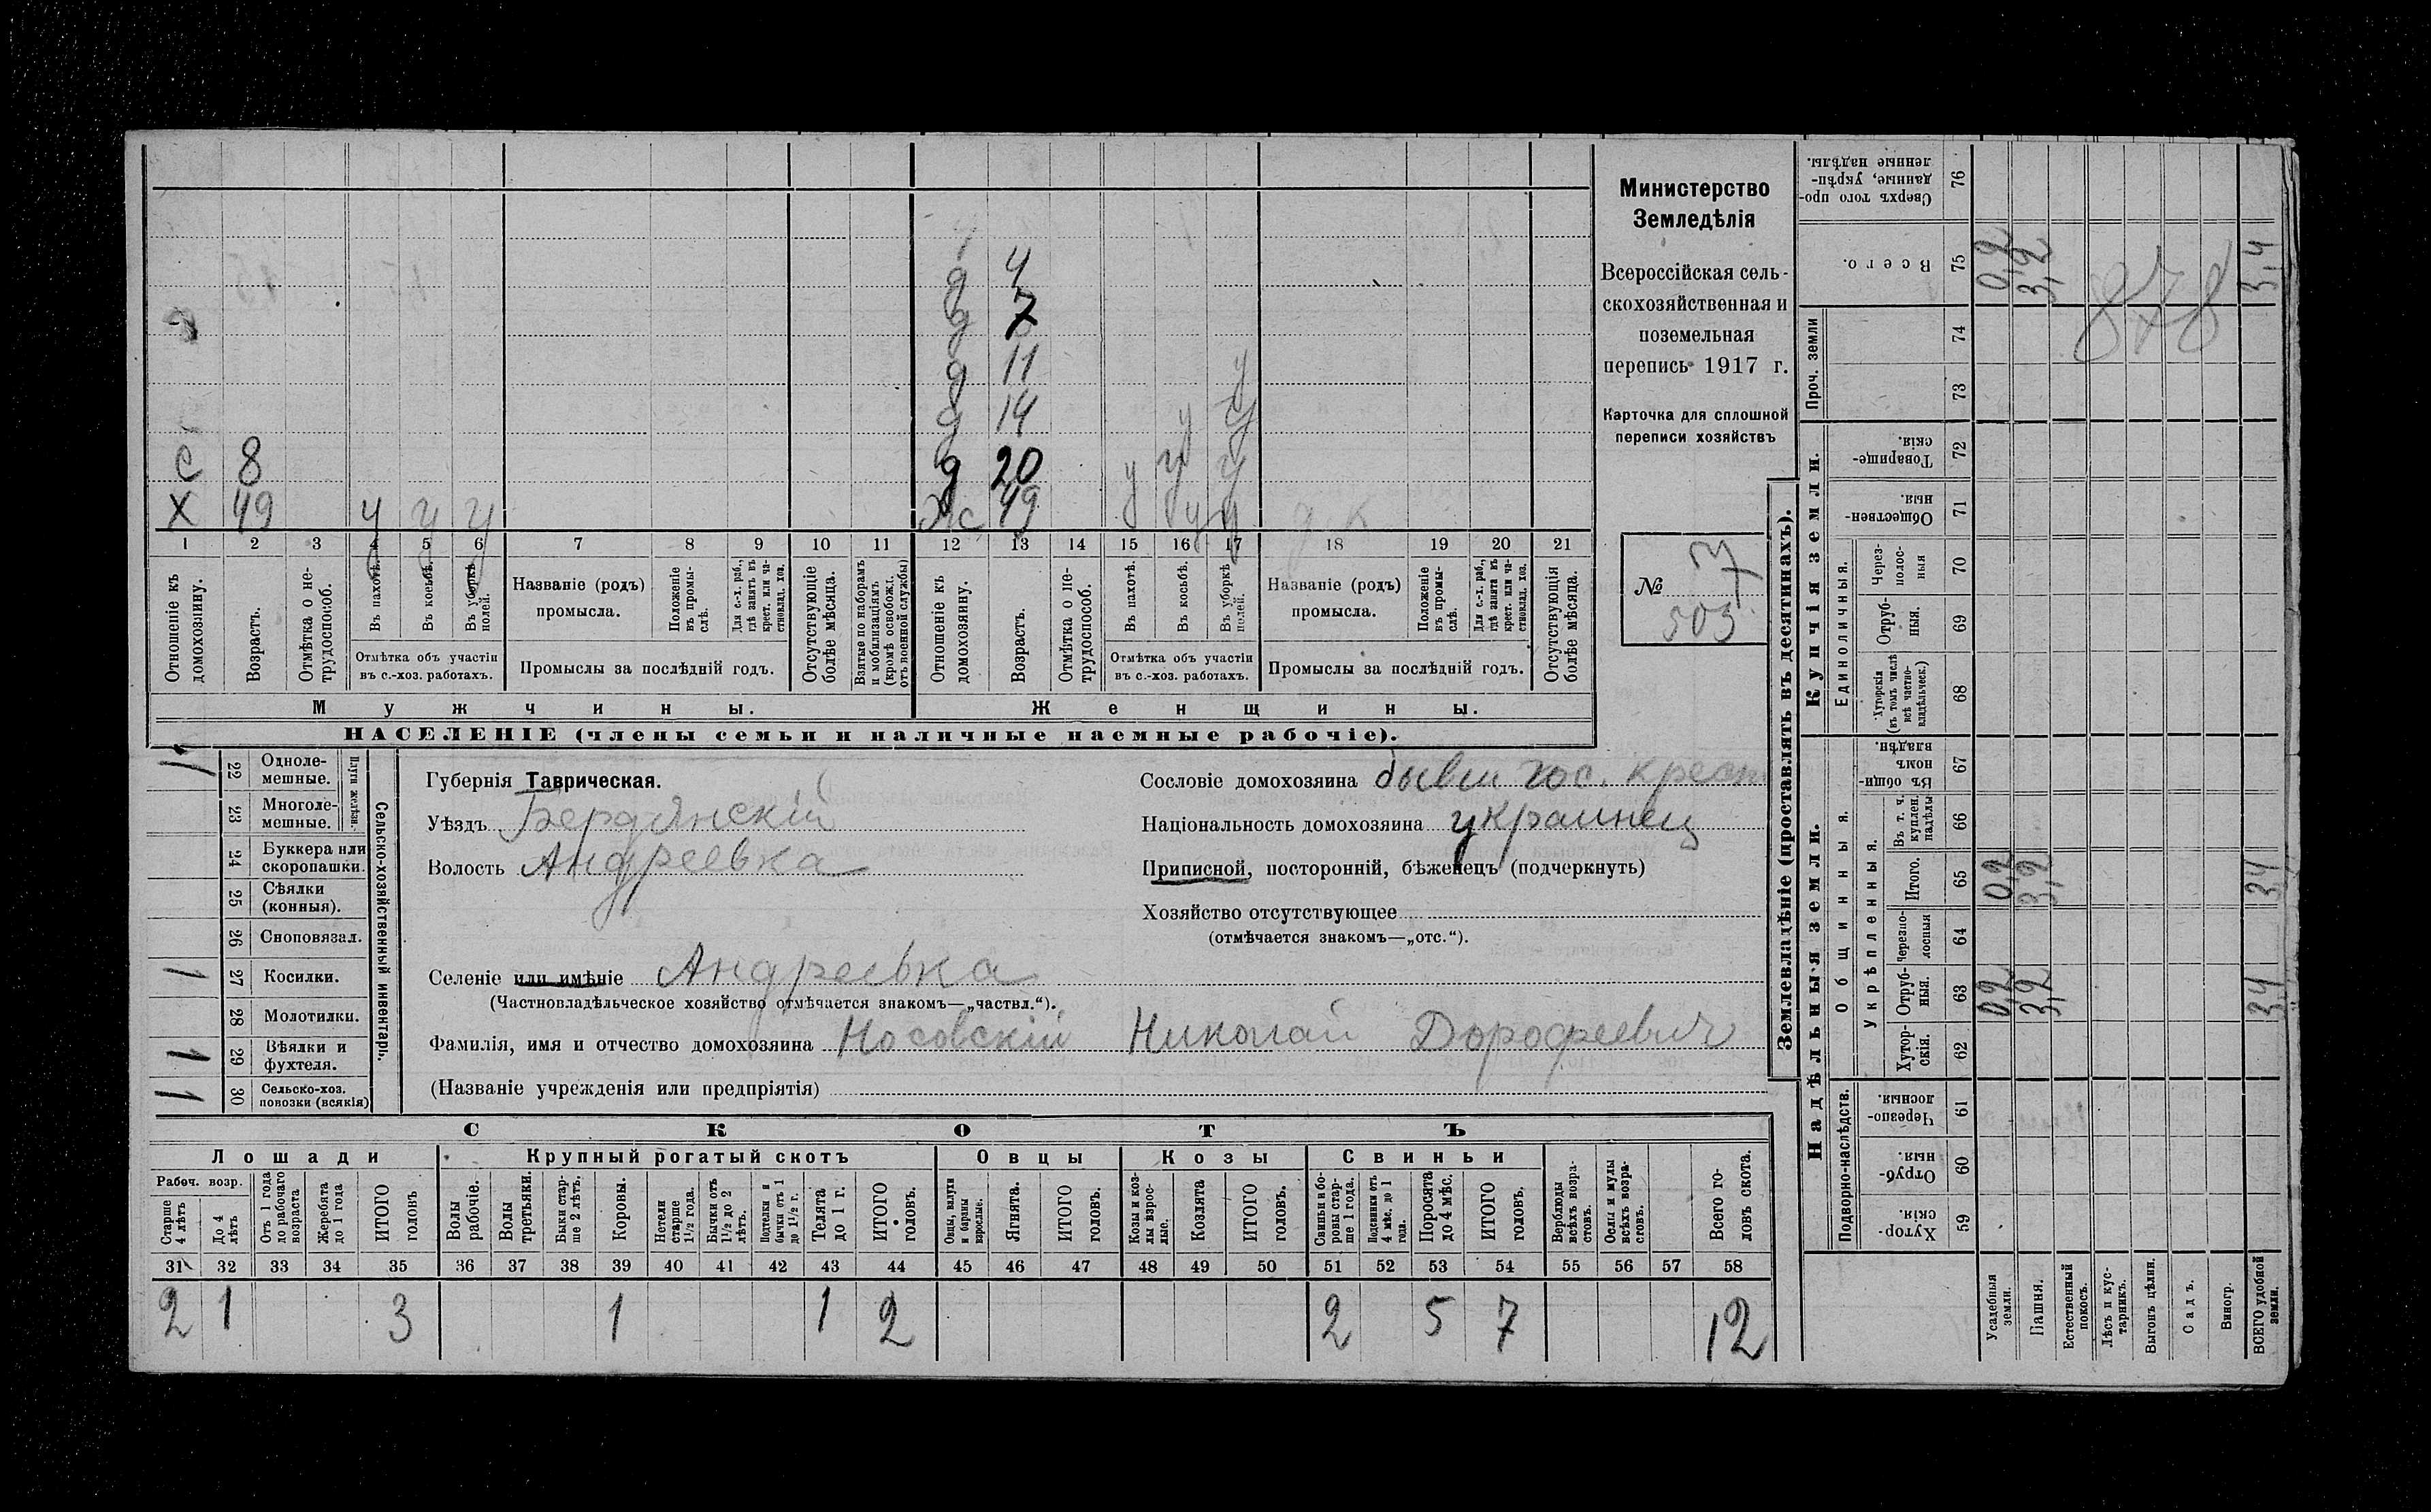 д 4
д 7
д 11 у
д 14 у у
с 8 д 20 у у у
х 49 у у у ж 49 у у у
1 2 3 4 5 6 7 8 9 10 11 12 13 14 15 16 17 18 19 20 21
Отношеніе къ домохозяину.
Возрастъ.
Отмѣтка о не-трудоспособ.
Въ пахотѣ.
Въ косьбѣ.
Въ уборкѣ полей.
Отмѣтка объ участіи
въ с.-хоз. работахъ.
Названіе (родъ)
промысла.
Положеніе въ промы-слѣ.
Для с.-х. раб., гдѣ занятъ въ крест. или ча-стновлад. хоз.
Промыслы за послѣдній годъ.
Отсутствующіе болѣе мѣсяца.
Взятые по наборамъ и мобилизаціямъ (кромѣ освобожд. отъ военной службы)
Отношеніе къ домохозяину.
Возрастъ.
Отмѣтка о не-трудоспособ.
Въ пахотѣ.
Въ косьбѣ.
Въ уборкѣ полей.
Отмѣтка объ участіи
въ с.-хоз. работахъ.
Названіе (родъ)
промысла.
Положеніе въ промы-слѣ.
Для с.-х. раб., гдѣ занята въ крест. или ча-стновлад. хоз.
Промыслы за послѣдній годъ.
Отсутствующія болѣе мѣсяца.
Мужчины.
Женщины.
НАСЕЛЕНІЕ (члены семьи и наличные наемные рабочіе).
Министерство
Земледѣлія
Всероссійская сель-
скохозяйственная и
поземельная
перепись 1917 г.
Карточка для сплошной
переписи хозяйствъ
№
503
Сельско-хозяйственный инвентарь.
Плуги желѣзн.
1 22 Одноле-мешные.
23 Многоле-мешные.
24 Буккера или скоропашки.
25 Сѣялки (конныя).
26 Сноповязал.
1 27 Косилки.
28 Молотилки.
1 29 Вѣялки и фухтеля.
1 30 Сельско-хоз. повозки (всякія)
Губернія Таврическая.
Уѣздъ Бердянскій
Волость Андреевка
Сословіе домохозяина бывш гос. крест
Національность домохозяина украинец
Приписной, посторонній, бѣженецъ (подчеркнуть)
Хозяйство отсутствующее
(отмѣчается знакомъ—„отс.“).
Селеніе или имѣніе Андреевка
(Частновладѣльческое хозяйство отмѣчается знакомъ—„частвл.“).
Фамилія, имя и отчество домохозяина Носовскій Николай Дорофеевич
(Названіе учрежденія или предпріятія)
СКОТЪ
Лошади Крупный рогатый скотъ Овцы Козы Свиньи
Рабоч. возр.
Старше 4 лѣтъ
До 4 лѣтъ
Отъ 1 года до рабочаго возраста
Жеребята до 1 года
ИТОГО головъ
Волы рабочіе.
Волы третьяки.
Быки стар-ше 2 лѣтъ.
Коровы.
Нетели старше 1½ года.
Бычки отъ 1½ до 2 лѣтъ.
Подтелки и бычки отъ 1 до 1½ г.
Телята до 1 г.
ИТОГО головъ.
Овцы, валухи и бараны взрослые.
Ягнята.
ИТОГО головъ.
Козы и коз-лы взрос-лые.
Козлята
ИТОГО головъ.
Свиньи и бо-ровы стар-ше 1 года.
Подсвинки отъ 4 мѣс. до 1 года.
Поросята до 4 мѣс.
ИТОГО головъ.
Верблюды всѣхъ возра-стовъ.
Ослы и мулы всѣхъ возра-стовъ.
Всего го-ловъ скота.
31 32 33 34 35 36 37 38 39 40 41 42 43 44 45 46 47 48 49 50 51 52 53 54 55 56 57 58
2 1 3 1 1 2 2 5 7 12
Землевладѣніе (проставлять въ десятинахъ).
Надѣльныя земли.
Купчія земли.
Проч. земли
Подворно-наслѣдств.
Общинныя.
Укрѣпленныя.
Единоличныя.
Сверхъ того про-данные, укрѣп-ленные надѣлы. 76
Всего. 75 0,2 3,2 3,4
878
74
73
Товарище-скія. 72
Обществен-ныя. 71
Через-полос-ныя 70
Отруб-ныя. 69
Хуторскія (въ томъ числѣ всѣ частно-владѣльческ.) 68
Въ общи-номъ владѣн. 67
Въ т. ч. куплен. надѣлы 66
Итого. 65 0,2 3,2 3,4
Черезпо-лосныя 64
Отруб-ныя. 63 0,2 3,2 3,4
Хутор-скія. 62
Черезпо-лосныя. 61
Отруб-ныя. 60
Хутор-скія. 59
Усадебныя земли.
Пашня.
Естественный покосъ.
Лѣсъ и кус-тарникъ.
Выгонъ цѣлин.
Садъ.
Виногр.
ВСЕГО удобной земли.